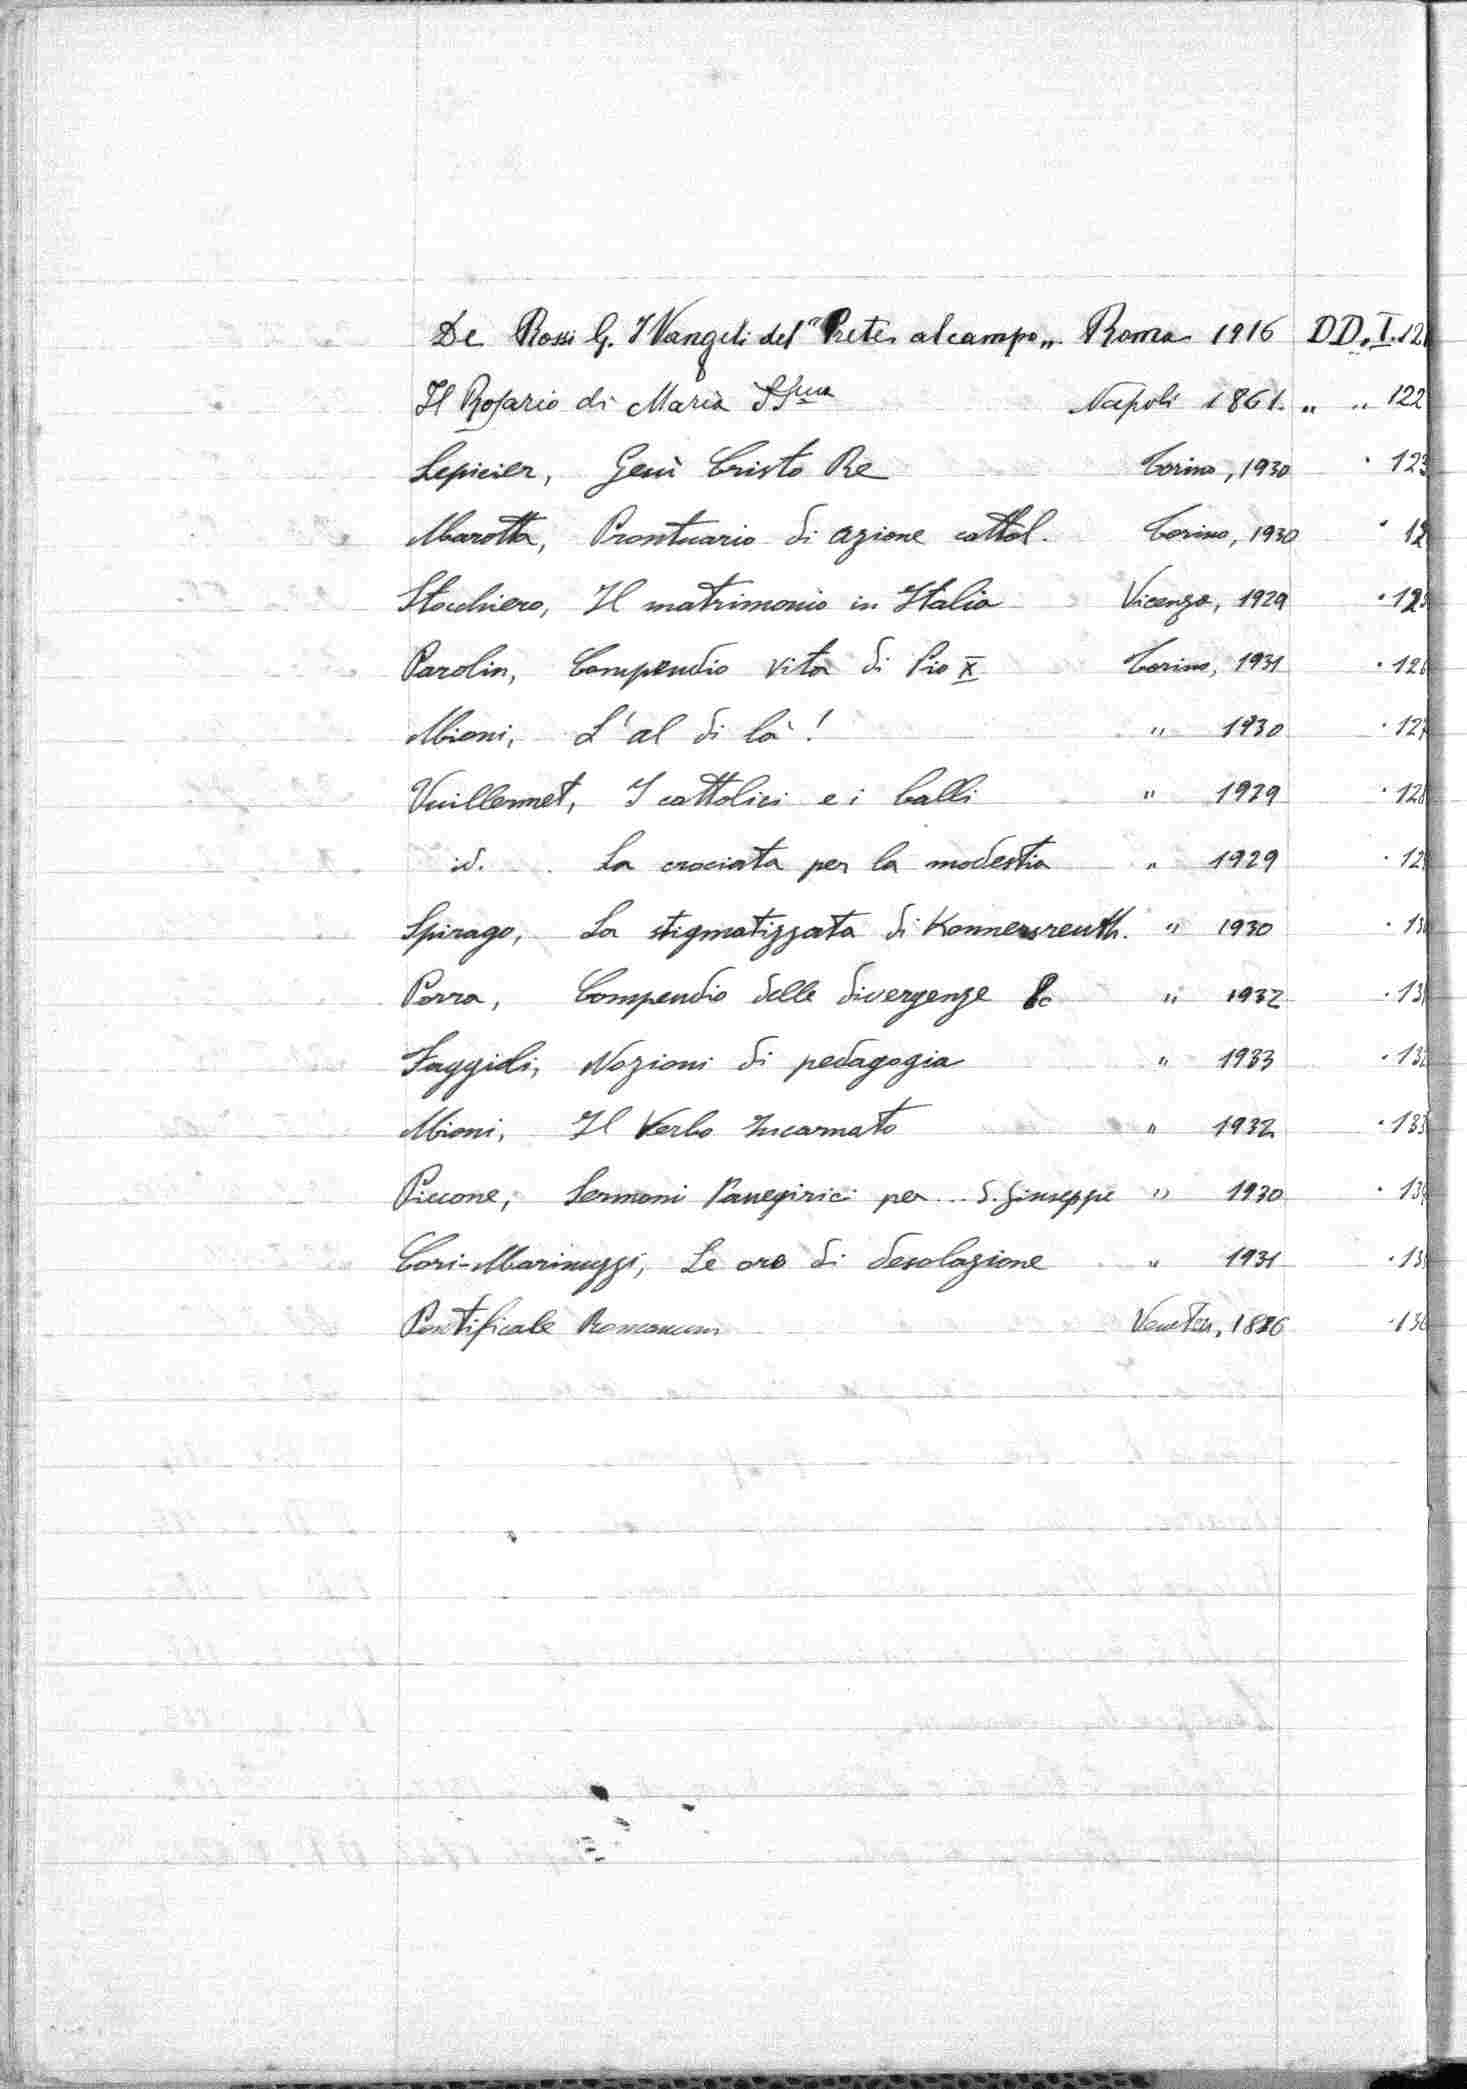 De Rossi G. I Vangeli del "Prete al campo„ Roma 1916 DD. I. 12
Il Rosario di Maria SSma Napoli 1861. „ „ 122
Lepicier, Gesù Cristo Re Torino, 1930 " 123
Marotta, Prontuario di azione cattol. Torino, 1930 " 12
Stocchiero, Il matrimonio in Italia Vicenza, 1929 " 125
Parolin, Compendio vita di Pio X Torino, 1931 " 126
Mioni, L'al di là! " 1930 " 127
Vuillermet, I cattolici e i balli " 1929 " 128
id. La crociata per la modestia " 1929 " 12
Spirago, La stigmatizzata di Konnersreuth. " 1930 " 13
Perra, Compendio delle divergenze &c " 1932 " 131
Faggioli, Nozioni di pedagogia " 1933 " 132
Mioni, Il Verbo Incarnato " 1932 " 133
Piccone, Sermoni Panegirici per... S. Giuseppe " 1930 " 13
Cori-Marinuzzi, Le ore di desolazione " 1931 " 13
Pontificale Romanum 136